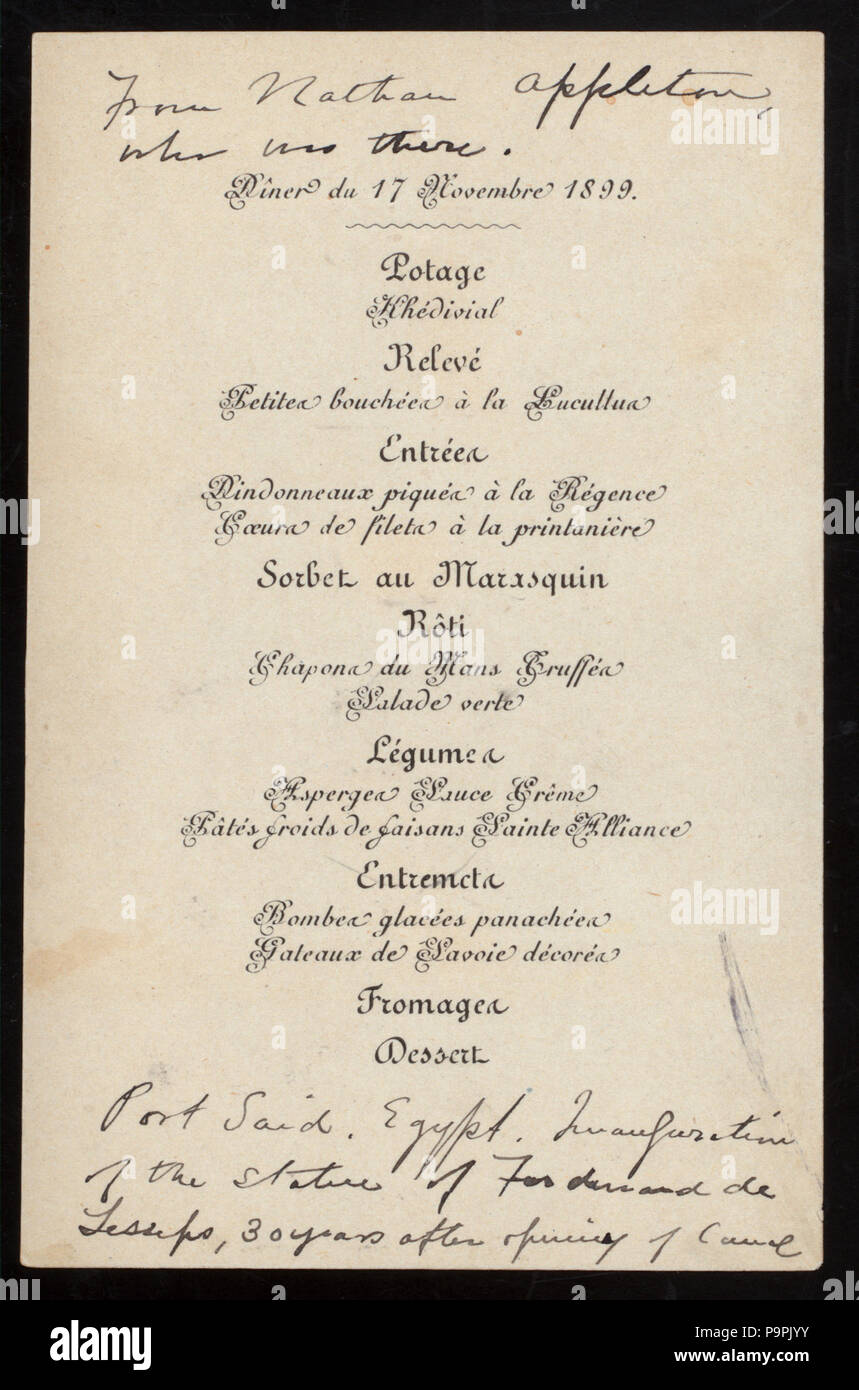 From Nathan Appleton,
who was there.
Dîner du 17 Novembre 1899.
Potage
Khédivial
Relevé
Petites bouchées à la Lucullus
Entrées
Dindonneaux piqués à la Régence
Cœurs de filets à la printanière
Sorbet au Marasquin
Rôti
Chapons du Mans Truffés
Salade verte
Légumes
Asperges Sauce Crême
Pâtés froids de faisans Sainte Alliance
Entremets
Bombes glacées panachées
Gateaux de Savoie décorés
Fromages
Dessert
Port Said. Egypt. Inauguration
of the statue of Ferdinand de
Lesseps, 30 years after opening of Canal
alamy
Image ID: P9PJYY
www.alamy.com